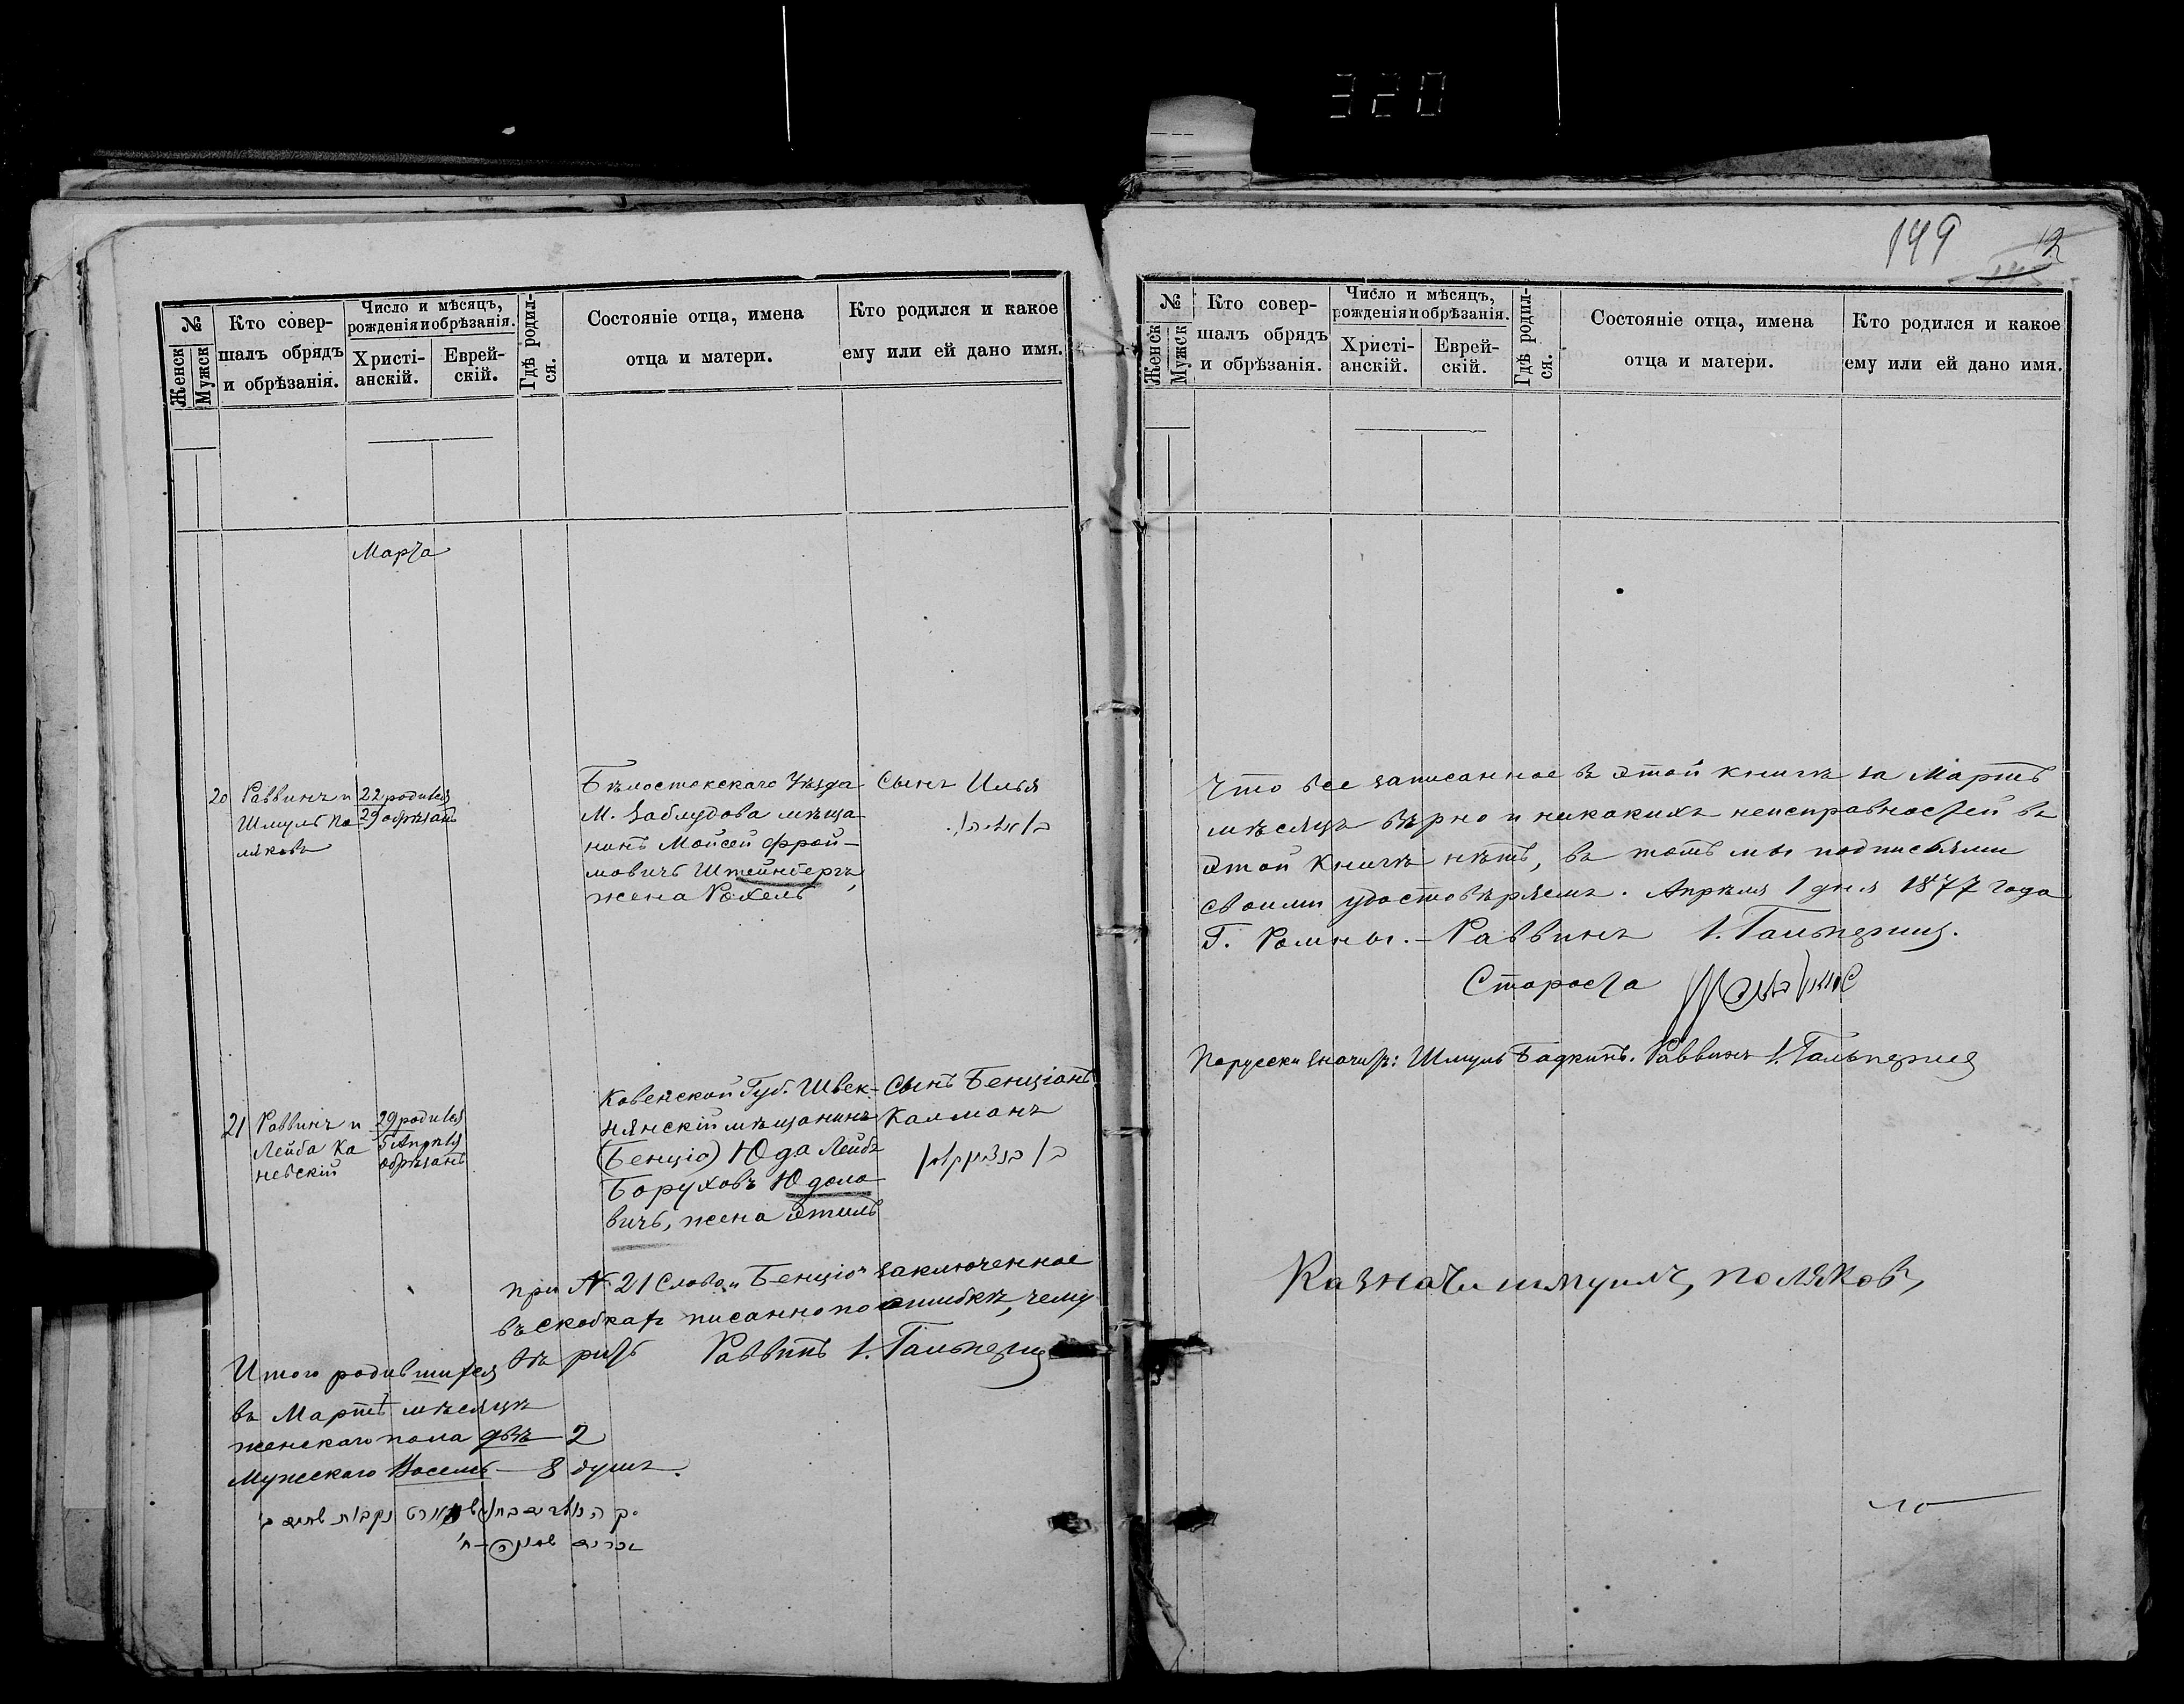 320
№
Женск
Мужск
Кто совер-
шалъ обрядъ
и обрѣзанія.
Число и мѣсяцъ,
рожденія и обрѣзанія.
Христі-
анскій.
Еврей-
скій.
Гдѣ родил-
ся.
Состояніе отца, имена
отца и матери.
Кто родился и какое
ему или ей дано имя.
Марта
20
Раввинъ и
Шмуль По
ляковъ
22 родился
29 обрѣзанъ
Бѣлостокскаго Уѣзда
М. Заблудова мѣща
нинъ Мойсей Фрой-
мовичъ Штейнбергъ,
жена Рохель
Сынъ Илья
21
Раввинъ и
Лейба Ка
невскій
29 родился
5 Апрѣля
обрѣзанъ
Ковенской Губ. Швек-
нянскій мѣщанинъ
(Бенціо) Юда Лейбъ
Боруховъ Юдоло
вичъ, жена Этиль
Сынъ Бенціонъ
Калманъ
при № 21 Слово „Бенціо" заключенное
въ скобкахъ писанно по ошибкѣ, чему
вѣрить Раввинъ І. Гальперинъ
Итого родившихся
въ Мартѣ мѣсяцѣ
женскаго пола двѣ — 2
Мужескаго Восемь — 8 душъ.
149
12
№
Женск
Мужск
Кто совер-
шалъ обрядъ
и обрѣзанія.
Число и мѣсяцъ,
рожденія и обрѣзанія.
Христі-
анскій.
Еврей-
скій.
Гдѣ родил-
ся.
Состояніе отца, имена
отца и матери.
Кто родился и какое
ему или ей дано имя.
Что все записанное въ этой книгѣ за Мартъ
мѣсяцъ вѣрно и никакихъ неисправностей въ
этой книгѣ нѣтъ, въ томъ мы подписями
своими удостовѣряемъ. Апрѣля 1 дня 1877 года
Г. Ромны. — Раввинъ І. Гальперинъ.
Староста
По русски значитъ: Шмуль Бадкинъ. Раввинъ І. Гальперинъ
Казначи шмуилъ, поляковъ,